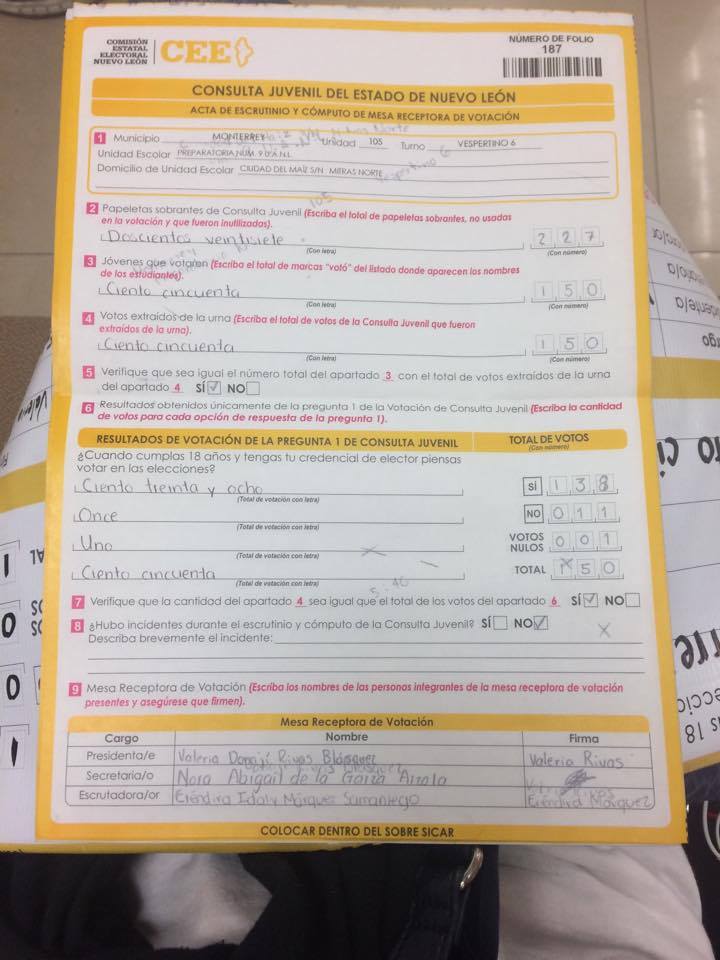 COMISIÓN
ESTATAL
ELECTORAL
NUEVO LEÓN
CEE
NÚMERO DE FOLIO
187
CONSULTA JUVENIL DEL ESTADO DE NUEVO LEÓN
ACTA DE ESCRUTINIO Y CÓMPUTO DE MESA RECEPTORA DE VOTACIÓN
1 Municipio MONTERREY Unidad 105 Turno VESPERTINO 6
Unidad Escolar PREPARATORIA NÚM. 9 U.A.N.L
Domicilio de Unidad Escolar CIUDAD DEL MAÍZ S/N MITRAS NORTE
2 Papeletas sobrantes de Consulta Juvenil (Escriba el total de papeletas sobrantes, no usadas
en la votación y que fueron inutilizadas).
Doscientos veintisiete 2 2 7
(Con letra) (Con número)
3 Jóvenes que votaron (Escriba el total de marcas "votó" del listado donde aparecen los nombres
de los estudiantes).
Ciento cincuenta 1 5 0
(Con letra) (Con número)
4 Votos extraídos de la urna (Escriba el total de votos de la Consulta Juvenil que fueron
extraídos de la urna).
Ciento cincuenta 1 5 0
(Con letra) (Con número)
5 Verifique que sea igual el número total del apartado 3 con el total de votos extraídos de la urna
del apartado 4 SÍ ✓ NO
6 Resultados obtenidos únicamente de la pregunta 1 de la Votación de Consulta Juvenil (Escriba la cantidad
de votos para cada opción de respuesta de la pregunta 1).
RESULTADOS DE VOTACIÓN DE LA PREGUNTA 1 DE CONSULTA JUVENIL TOTAL DE VOTOS
(Con número)
¿Cuando cumplas 18 años y tengas tu credencial de elector piensas
votar en las elecciones?
Ciento treinta y ocho SÍ 1 3 8
(Total de votación con letra)
Once NO 0 1 1
(Total de votación con letra)
Uno VOTOS NULOS 0 0 1
(Total de votación con letra)
Ciento cincuenta TOTAL 1 5 0
(Total de votación con letra)
5:40
7 Verifique que la cantidad del apartado 4 sea igual que el total de los votos del apartado 6 SÍ ✓ NO
8 ¿Hubo incidentes durante el escrutinio y cómputo de la Consulta Juvenil? SÍ NO ✓
Describa brevemente el incidente:
9 Mesa Receptora de Votación (Escriba los nombres de las personas integrantes de la mesa receptora de votación
presentes y asegúrese que firmen).
Mesa Receptora de Votación
Cargo Nombre Firma
Presidenta/e Valeria Donají Rivas Blásquez Valeria Rivas
Secretaria/o Nora Abigail de la Garza
Escrutadora/or Eréndira Idaly Márquez Samaniego Eréndira Márquez
COLOCAR DENTRO DEL SOBRE SICAR